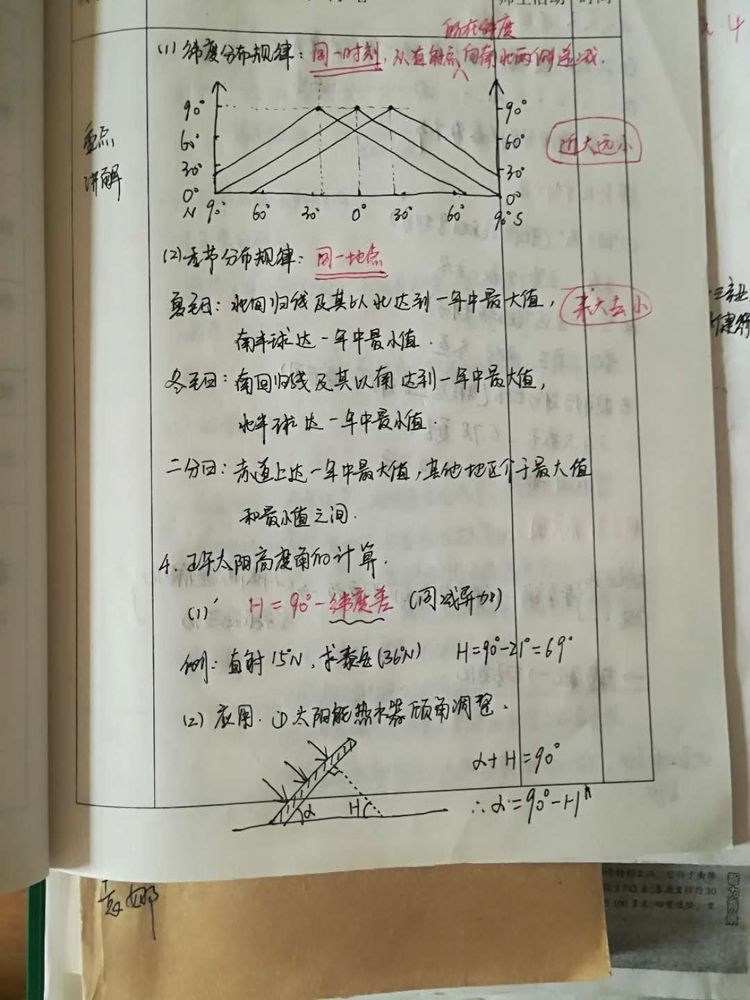 师生活动 时间
所在纬度
(1) 纬度分布规律：同一时刻，从直射点∧向南北两侧递减.
重点
讲解
90° 90°
60° 60°
30° 30°
0° 0°
N 90° 60° 30° 0° 30° 60° 90° S
近大远小
(2) 季节分布规律：同一地点
夏至日：北回归线及其以北达到一年中最大值，
来大去小
南半球达一年中最小值.
冬至日：南回归线及其以南达到一年中最大值，
北半球达一年中最小值.
二分日：赤道上达一年中最大值，其他地区介于最大值
和最小值之间.
4. 正午太阳高度角的计算.
(1) H = 90° - 纬度差 (同减异加)
例：直射15°N，求泰岳(36°N) H=90°-21°=69°
(2) 应用. ①太阳能热水器倾角调整.
α+H=90°
α H
∴α=90°-H
袁娜